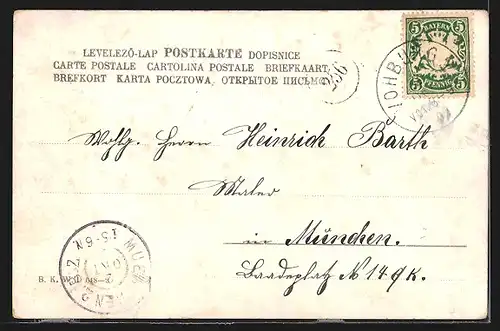 LEVELEZŐ-LAP POSTKARTE DOPISNICE
CARTE POSTALE CARTOLINA POSTALE BRIEFKAART
BREFKORT KARTA POCZTOWA, ОТКРЫТОЕ ПИСЬМО
BAYERN
5 5
5 PFENNIG 5
236
Wohlg. Herrn Heinrich Barth
Maler
in München.
Baadeplatz N 14
B. K.